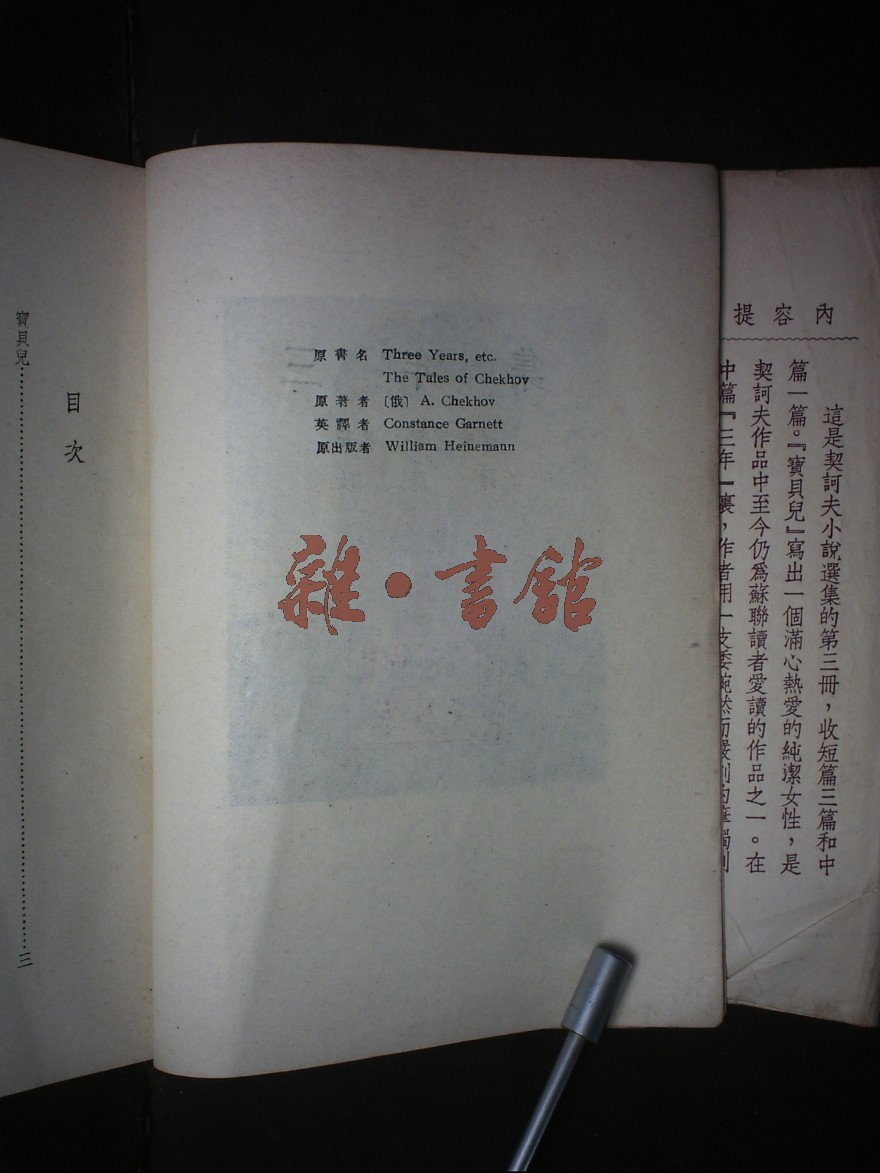 內容提
這是契訶夫小說選集的第三冊，收短篇三篇和中
篇一篇。『寶貝兒』寫出一個滿心熱愛的純潔女性，是
契訶夫作品中至今仍爲蘇聯讀者愛讀的作品之一。在
中篇『三年』裏，作者用一支委婉然而嚴
原書名 Three Years, etc.
The Tales of Chekhov
原著者 〔俄〕 A. Chekhov
英譯者 Constance Garnett
原出版者 William Heinemann
雜·書館
目次
寶貝兒……三